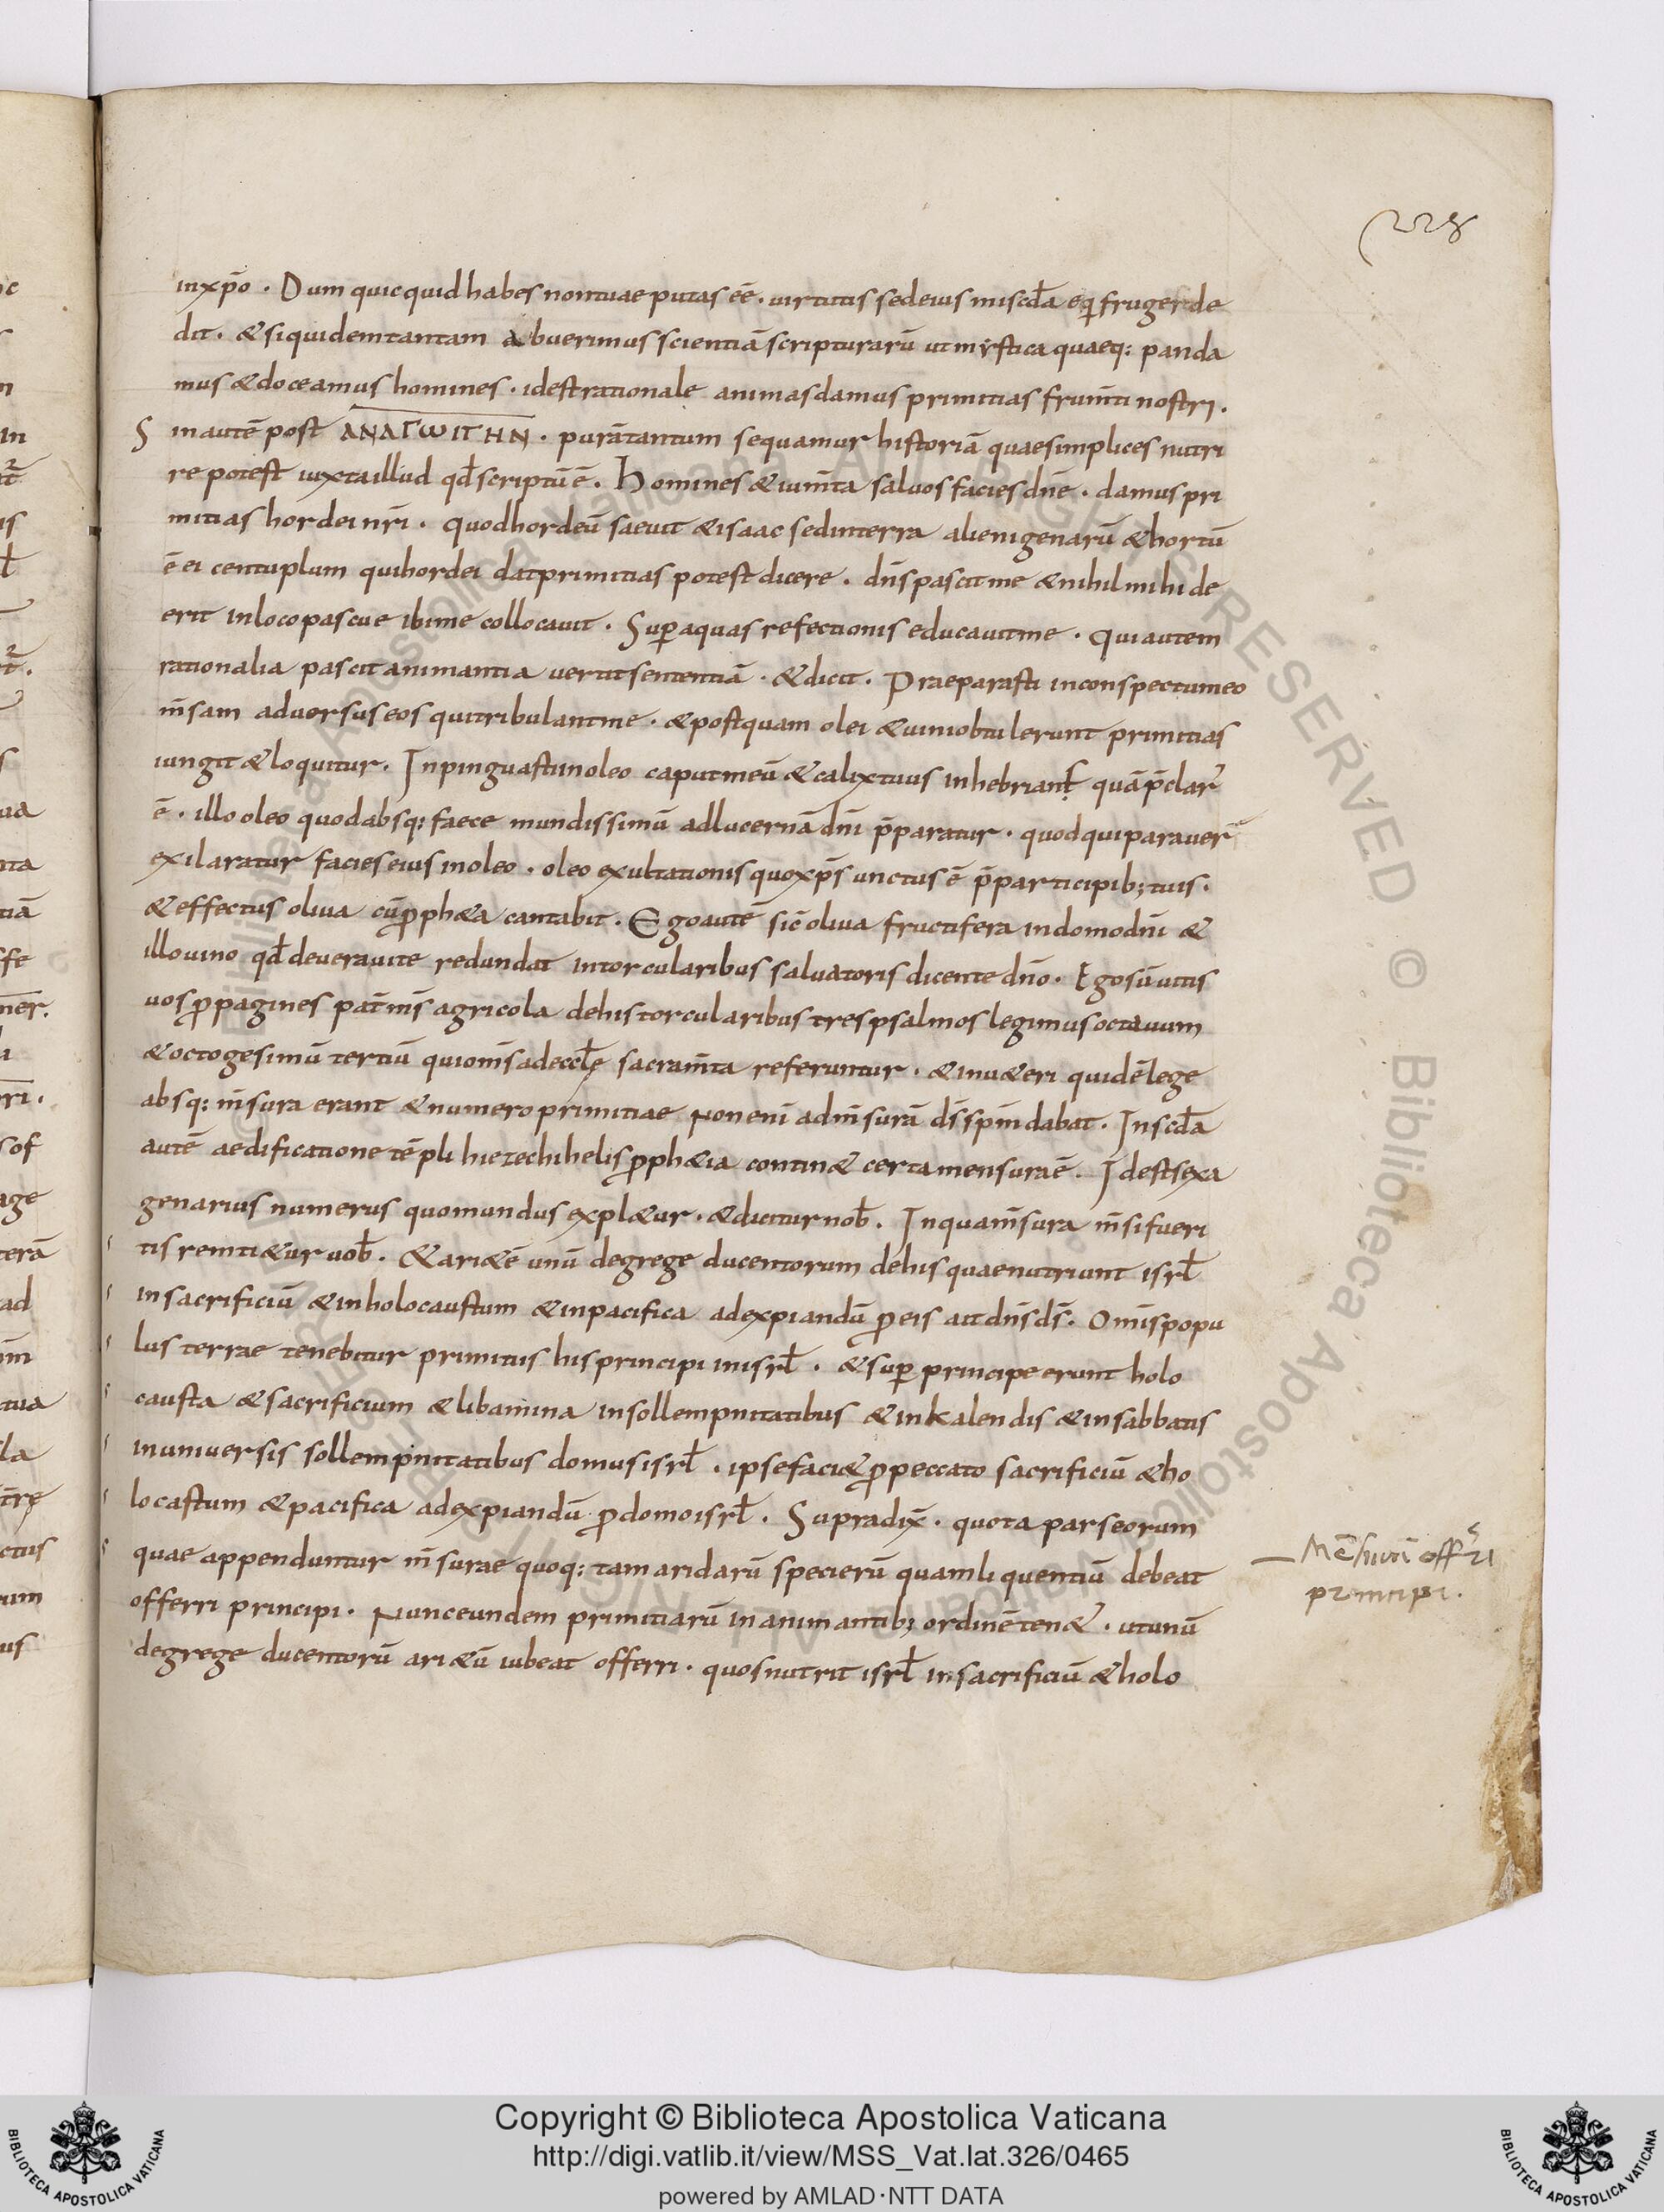 228
in xp̄o . Dum quicquid habes non tuae putas ēē . uirtutis sed eius miscd̄a eq̄ fruges de
dit . & si quidem tantam abuerimus scientiā scripturarū ut mẏstica quaeq: panda
mus & doceamus homines . id est rationale animas damus primitias frum̄ti nostri .
Sin autē post ΑΝΑΓΩΙΓΗΝ . purā tantum sequamur historiā quae simplices nutri
re potest iuxta illud qd̄ scriptū ē . Homines & ium̄ta saluos facies dn̄e . damus pri
mitias hordei nr̄i . quod hordeū saeuit & isaac sed in terra alienigenarū & hortū
ē ei centuplum qui hordei dat primitias potest dicere . dn̄s pascit me & nihil mihi de
erit in loco pascue ibi me collocauit . Sup̄ aquas refectionis educauit me . Qui autem
rationalia pascit animantia uertit sententiā . & dicit . Praeparasti in conspectu meo
m̄sam aduersus eos qui tribulant me . & postquam olei & uini obtulerunt primitias
iungit & loquitur . Inpinguasti in oleo caput meū & calix tuus inhebrians quā p̄clar᷒
ē . illo oleo quod absq: faece mundissimū ad lucernā dn̄i p̄paratur . quod qui parauer̄
exilaratur facies eius in oleo . oleo exultationis quo xp̄s unctus ē p̄ participib; tuis .
& effectus oliua cū ꝓph&a cantabit . Ego autē sic̄ oliua fructifera in domo dn̄i &
illo uino qd̄ de uera uite redundat in torcularibus saluatoris dicente dn̄o . Ego sū uitis
uos ꝓpagines pat̄ m̄s agricola de his torcularibus tres psalmos legimus octauum
& octogesimū tertiū qui om̄s ad eccl̄ę sacram̄ta referuntur . & in u&eri quidē lege
absq: m̄sura erant & numero primitiae Non eni̅ ad m̄surā d̄s sp̄m dabat . In scd̄a
autē aedificatione tēpli hiezechihelis ꝓph&ia contin& certa mensura ē . Id est sexa
genarius numerus quo mundus expl&ur . & dicitur nob̄ . In qua m̄sura m̄si fueri
tis remti&ur uob̄ . & ari&ē unū de grege ducentorum de his quae nutriunt isrl̄
in sacrificiū & in holocaustum & in pacifica ad expiandū ꝓ eis ait dn̄s d̄s . Om̄is popu
lus terrae tenebitur primitiis his principi in isrl̄ . & sup̄ principe erunt holo
causta & sacrificium & libamina in sollempnitatibus & in kalendis & in sabbatis
in uniuersis sollempnitatibus domus isrl̄ . ipse faci& ꝓ peccato sacrificiū & ho
locastum & pacifica ad expiandū ꝓ domo isrl̄ . Supra dix̄ . quota pars eorum
quae appenduntur m̄surae quoq: tam aridarū specierū quam liquentiū debeat
offerri principi . Nunc eundem primitiarū in animantib; ordinē ten& . ut unū
de grege ducentorū ari&ū iubeat offerri . quos nutrit isrl̄ in sacrificiū & holo
principi.
Copyright © Biblioteca Apostolica Vaticana
http://digi.vatlib.it/view/MSS_Vat.lat.326/0465
powered by AMLAD·NTT DATA
BIBLIOTECA APOSTOLICA VATICANA
BIBLIOTECA APOSTOLICA VATICANA